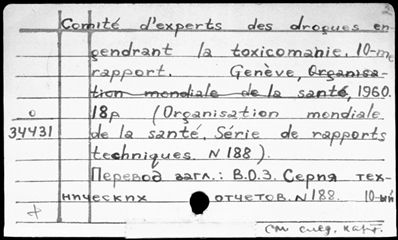 2
Comité d'experts des drogues en-
gendrant la toxicomanie. 10-me
rapport. Genève, Organisa-
tion mondiale de la santé, 1960.
18p (Organisation mondiale
de la santé. Série de rapports
techniques. N 188).
0
34431
Перевод загл.: В.О.З. Серия тех-
нических отчетов. N 188. 10-ый
+
см след. карт.